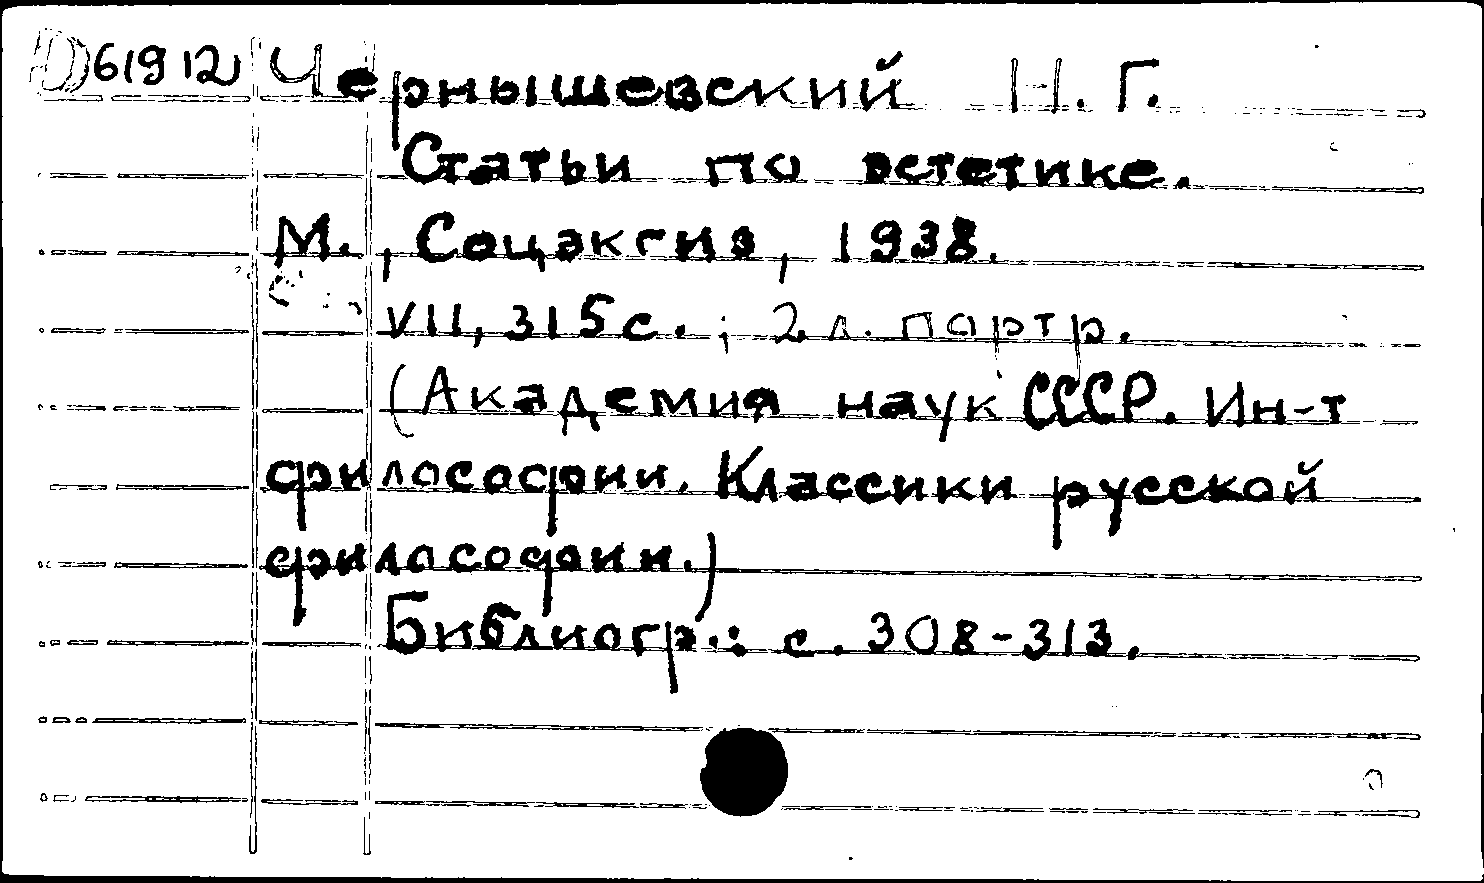 D61912 Чернышевский Н. Г.
Статьи по эстетике.
М., Соцэкгиз, 1938.
VII, 315 с.; 2 л. портр.
(Академия наук СССР. Ин-т
философии. Классики русской
философии.)
Библиогр.: с. 308-313.